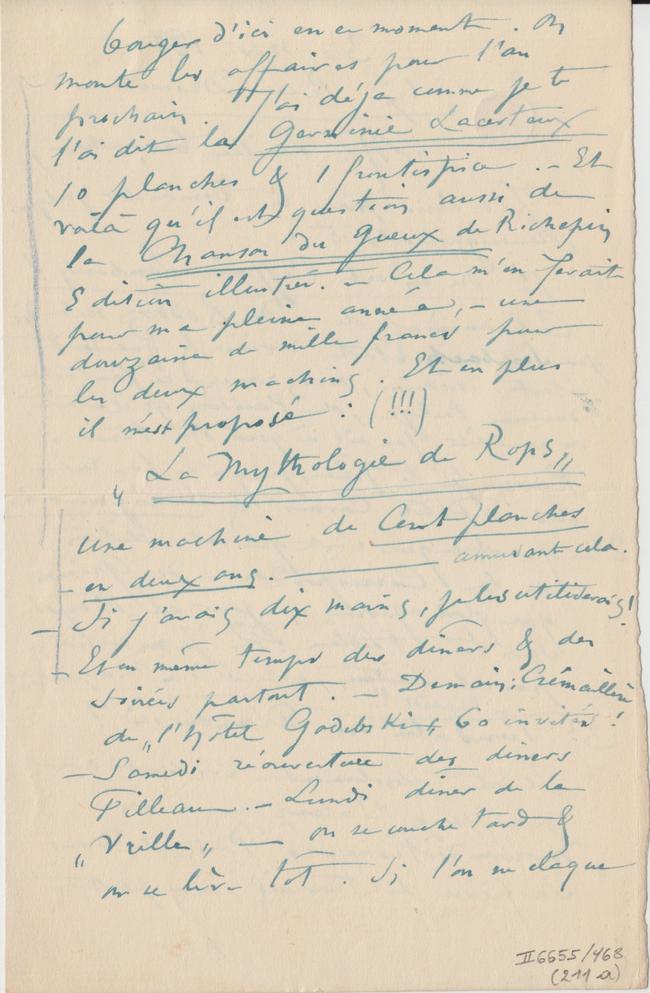 bouger d'ici en ce moment. On
monte les affaires pour l'an
prochain. J'ai déja comme je te
l'ai dit la Germinie Lacerteux
10 planches & 1 frontispice. – Et
voilà qu'il est question aussi de
la Chanson du Gueux de Richepin
Edition illustrée. – Cela m'en ferait
pour ma pleine année, – une
douzaine de mille francs pour
les deux machins. Et en plus
il m'est proposé : (!!!)
„ La Mythologie de Rops „
une machine de Cent planches
en deux ans. — amusant cela.
– Si j'avais dix mains, je les utiliserais!
– Et en même temps des dîners & des
soirées partout. – Demain: Crémaillère
de „l'Hôtel Godebski„ 60 invités!
– Samedi réouverture des diners
Filleau. – Lundi diner de la
„Vrille„ — on se couche tard &
on se lève tôt. Si l'on ne claque
II 6655/468
(211 a)